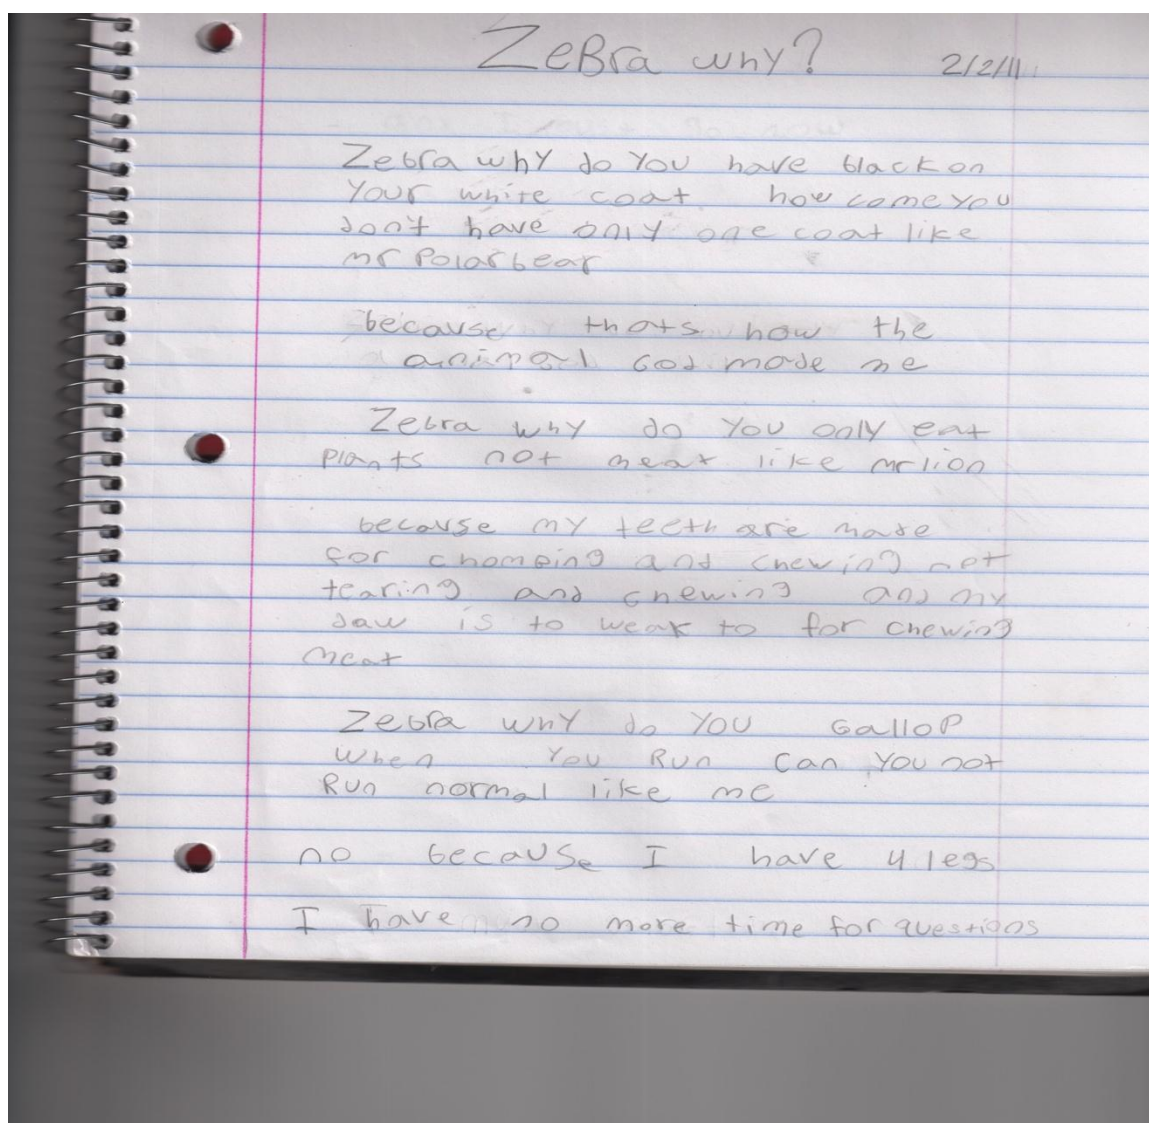 ZeBra why? 2/2/11
Zebra why do you have black on
your white coat how come you
don't have only one coat like
mr Polar bear
because thats how the
animal God made me
Zebra why do you only eat
plants not meat like mr lion
because my teeth are made
for chomping and chewing not
tearing and chewing and my
jaw is to weak to for chewing
meat
Zebra why do you Gallop
when you Run can you not
Run normal like me
no because I have 4 legs
I have no more time for questions